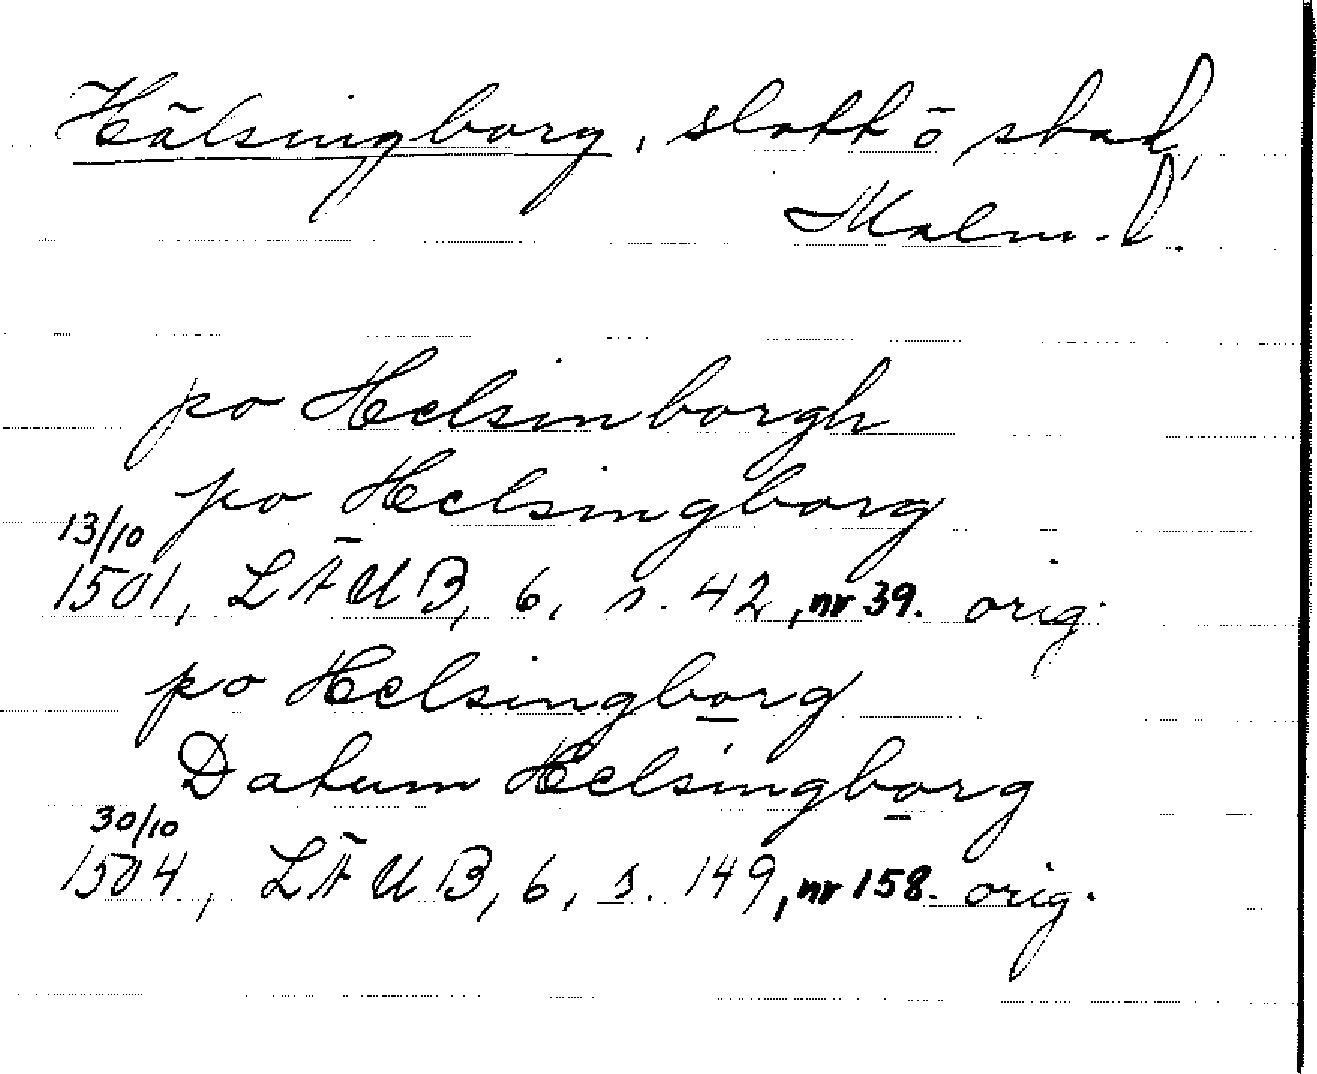 Hälsingborg, slott o stad,
Malm. l.
po Helsinborgh
po Helsingborg
13/10
1501, LÄUB, 6, s. 42, nr 39. orig.
po Helsingborg
Datum Helsingborg
30/10
1504, LÄUB, 6, s. 149, nr 158. orig.